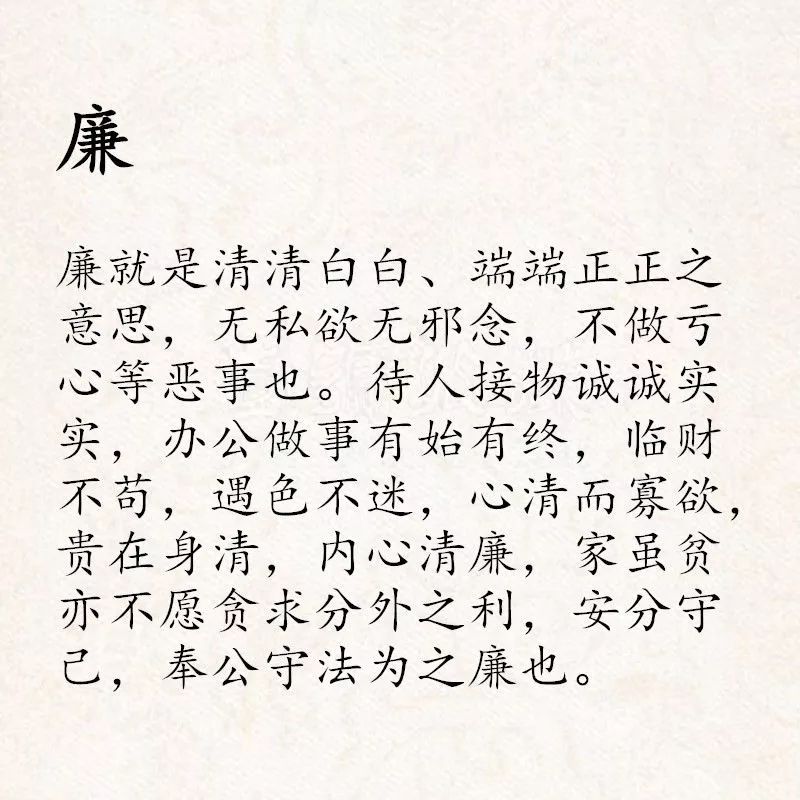 廉
廉就是清清白白、端端正正之
意思，无私欲无邪念，不做亏
心等恶事也。待人接物诚诚实
实，办公做事有始有终，临财
不苟，遇色不迷，心清而寡欲，
贵在身清，内心清廉，家虽贫
亦不愿贪求分外之利，安分守
己，奉公守法为之廉也。